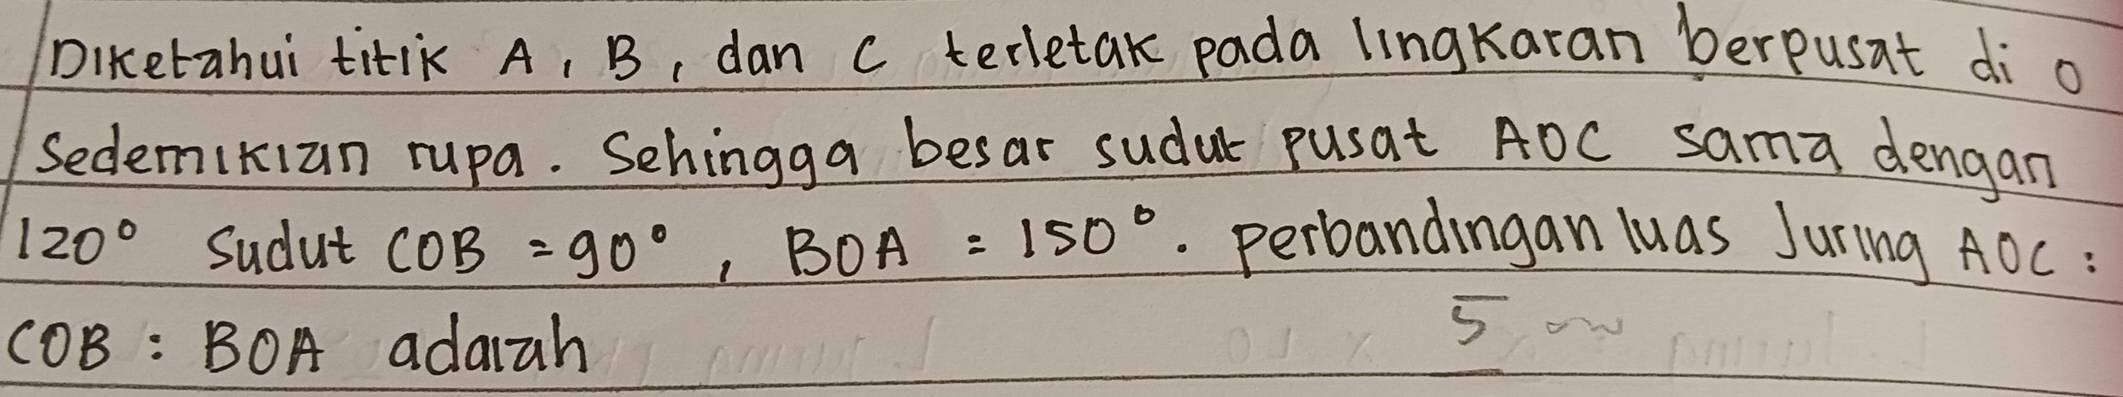 Diketahui titik A, B, dan C terletak pada lingkaran berpusat di O
sedemikian rupa. Sehingga besar sudut pusat AOC sama dengan
120° sudut COB = 90°, BOA = 150°. perbandingan luas Juring AOC :
COB : BOA adalah
5